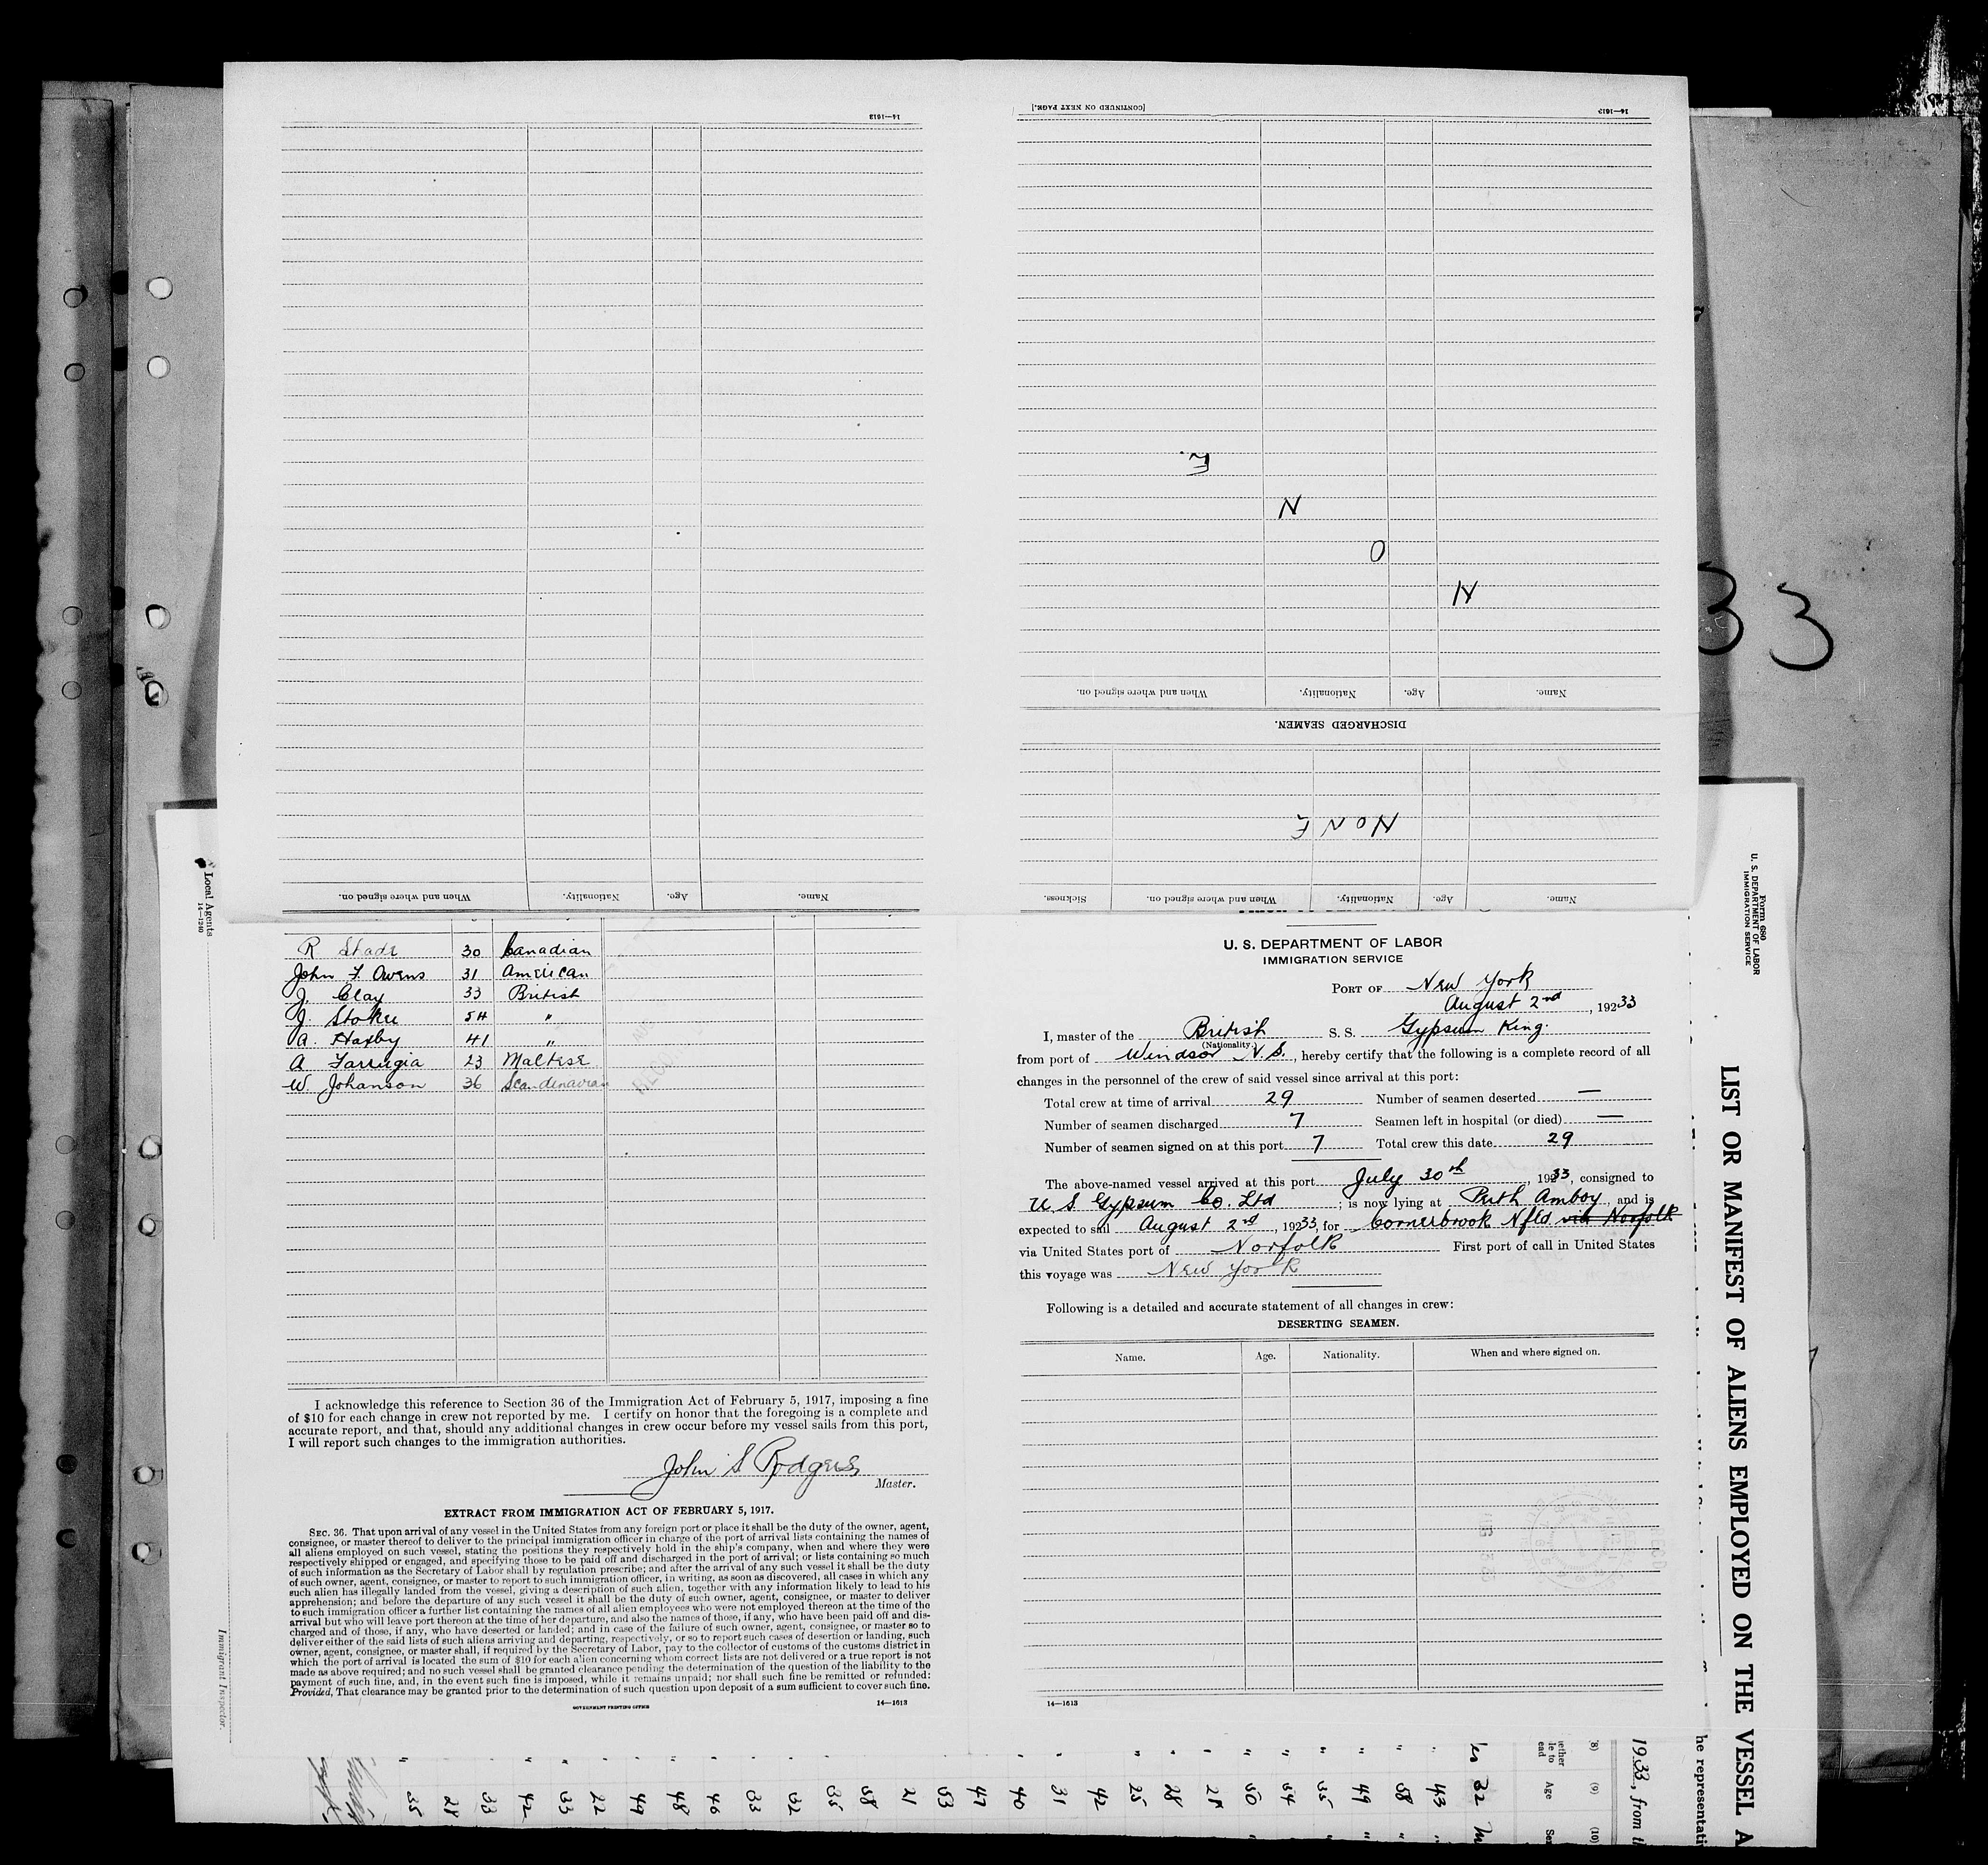 14—1613
[CONTINUED ON NEXT PAGE.]
14—1613
E.
N
O
N
When and where signed on. Nationality. Age. Name.
DISCHARGED SEAMEN.
NONE
When and where signed on. Nationality. Age. Name.
Sickness. When and where signed on. Nationality. Age. Name.
R Slade 30 Canadian
John F. Owens 31 American
J. Clay 33 British
J. Stoker 54 "
A. Haxby 41 "
A Farrugia 23 Maltese
W. Johanson 36 Scandinavian
I acknowledge this reference to Section 36 of the Immigration Act of February 5, 1917, imposing a fine
of $10 for each change in crew not reported by me. I certify on honor that the foregoing is a complete and
accurate report, and that, should any additional changes in crew occur before my vessel sails from this port,
I will report such changes to the immigration authorities.
John S Rodgers
Master.
EXTRACT FROM IMMIGRATION ACT OF FEBRUARY 5, 1917.
SEC. 36. That upon arrival of any vessel in the United States from any foreign port or place it shall be the duty of the owner, agent,
consignee, or master thereof to deliver to the principal immigration officer in charge of the port of arrival lists containing the names of
all aliens employed on such vessel, stating the positions they respectively hold in the ship's company, when and where they were
respectively shipped or engaged, and specifying those to be paid off and discharged in the port of arrival; or lists containing so much
of such information as the Secretary of Labor shall by regulation prescribe; and after the arrival of any such vessel it shall be the duty
of such owner, agent, consignee, or master to report to such immigration officer, in writing, as soon as discovered, all cases in which any
such alien has illegally landed from the vessel, giving a description of such alien, together with any information likely to lead to his
apprehension; and before the departure of any such vessel it shall be the duty of such owner, agent, consignee, or master to deliver
to such immigration officer a further list containing the names of all alien employees who were not employed thereon at the time of the
arrival but who will leave port thereon at the time of her departure, and also the names of those, if any, who have been paid off and dis-
charged and of those, if any, who have deserted or landed; and in case of the failure of such owner, agent, consignee, or master so to
deliver either of the said lists of such aliens arriving and departing, respectively, or so to report such cases of desertion or landing, such
owner, agent, consignee, or master shall, if required by the Secretary of Labor, pay to the collector of customs of the customs district in
which the port of arrival is located the sum of $10 for each alien concerning whom correct lists are not delivered or a true report is not
made as above required; and no such vessel shall be granted clearance pending the determination of the question of the liability to the
payment of such fine, and, in the event such fine is imposed, while it remains unpaid; nor shall such fine be remitted or refunded:
Provided, That clearance may be granted prior to the determination of such question upon deposit of a sum sufficient to cover such fine.
GOVERNMENT PRINTING OFFICE 14—1613
U. S. DEPARTMENT OF LABOR
IMMIGRATION SERVICE
PORT OF New York
August 2nd, 19233
I, master of the British S. S. Gypsum King.
(Nationality.)
from port of Windsor N.S., hereby certify that the following is a complete record of all
changes in the personnel of the crew of said vessel since arrival at this port:
Total crew at time of arrival 29 Number of seamen deserted —
Number of seamen discharged 7 Seamen left in hospital (or died) —
Number of seamen signed on at this port 7 Total crew this date 29
The above-named vessel arrived at this port July 30th, 1933, consigned to
U S Gypsum Co. Ltd; is now lying at Perth Amboy, and is
expected to sail August 2nd, 19233, for Cornerbrook Nfld via Norfolk
via United States port of Norfolk First port of call in United States
this voyage was New York
Following is a detailed and accurate statement of all changes in crew:
DESERTING SEAMEN.
Name. Age. Nationality. When and where signed on.
14—1613
Local Agents
14—1240
Immigrant Inspector.
33
Form 680
U. S. DEPARTMENT OF LABOR
IMMIGRATION SERVICE
LIST OR MANIFEST OF ALIENS EMPLOYED ON THE VESSEL A
he representati
1933, from th
(8) (9) (10)
Age
32
43
58
49
35
54
50
21
28
25
42
31
40
47
53
21
58
35
32
33
46
48
49
22
33
42
33
28
35